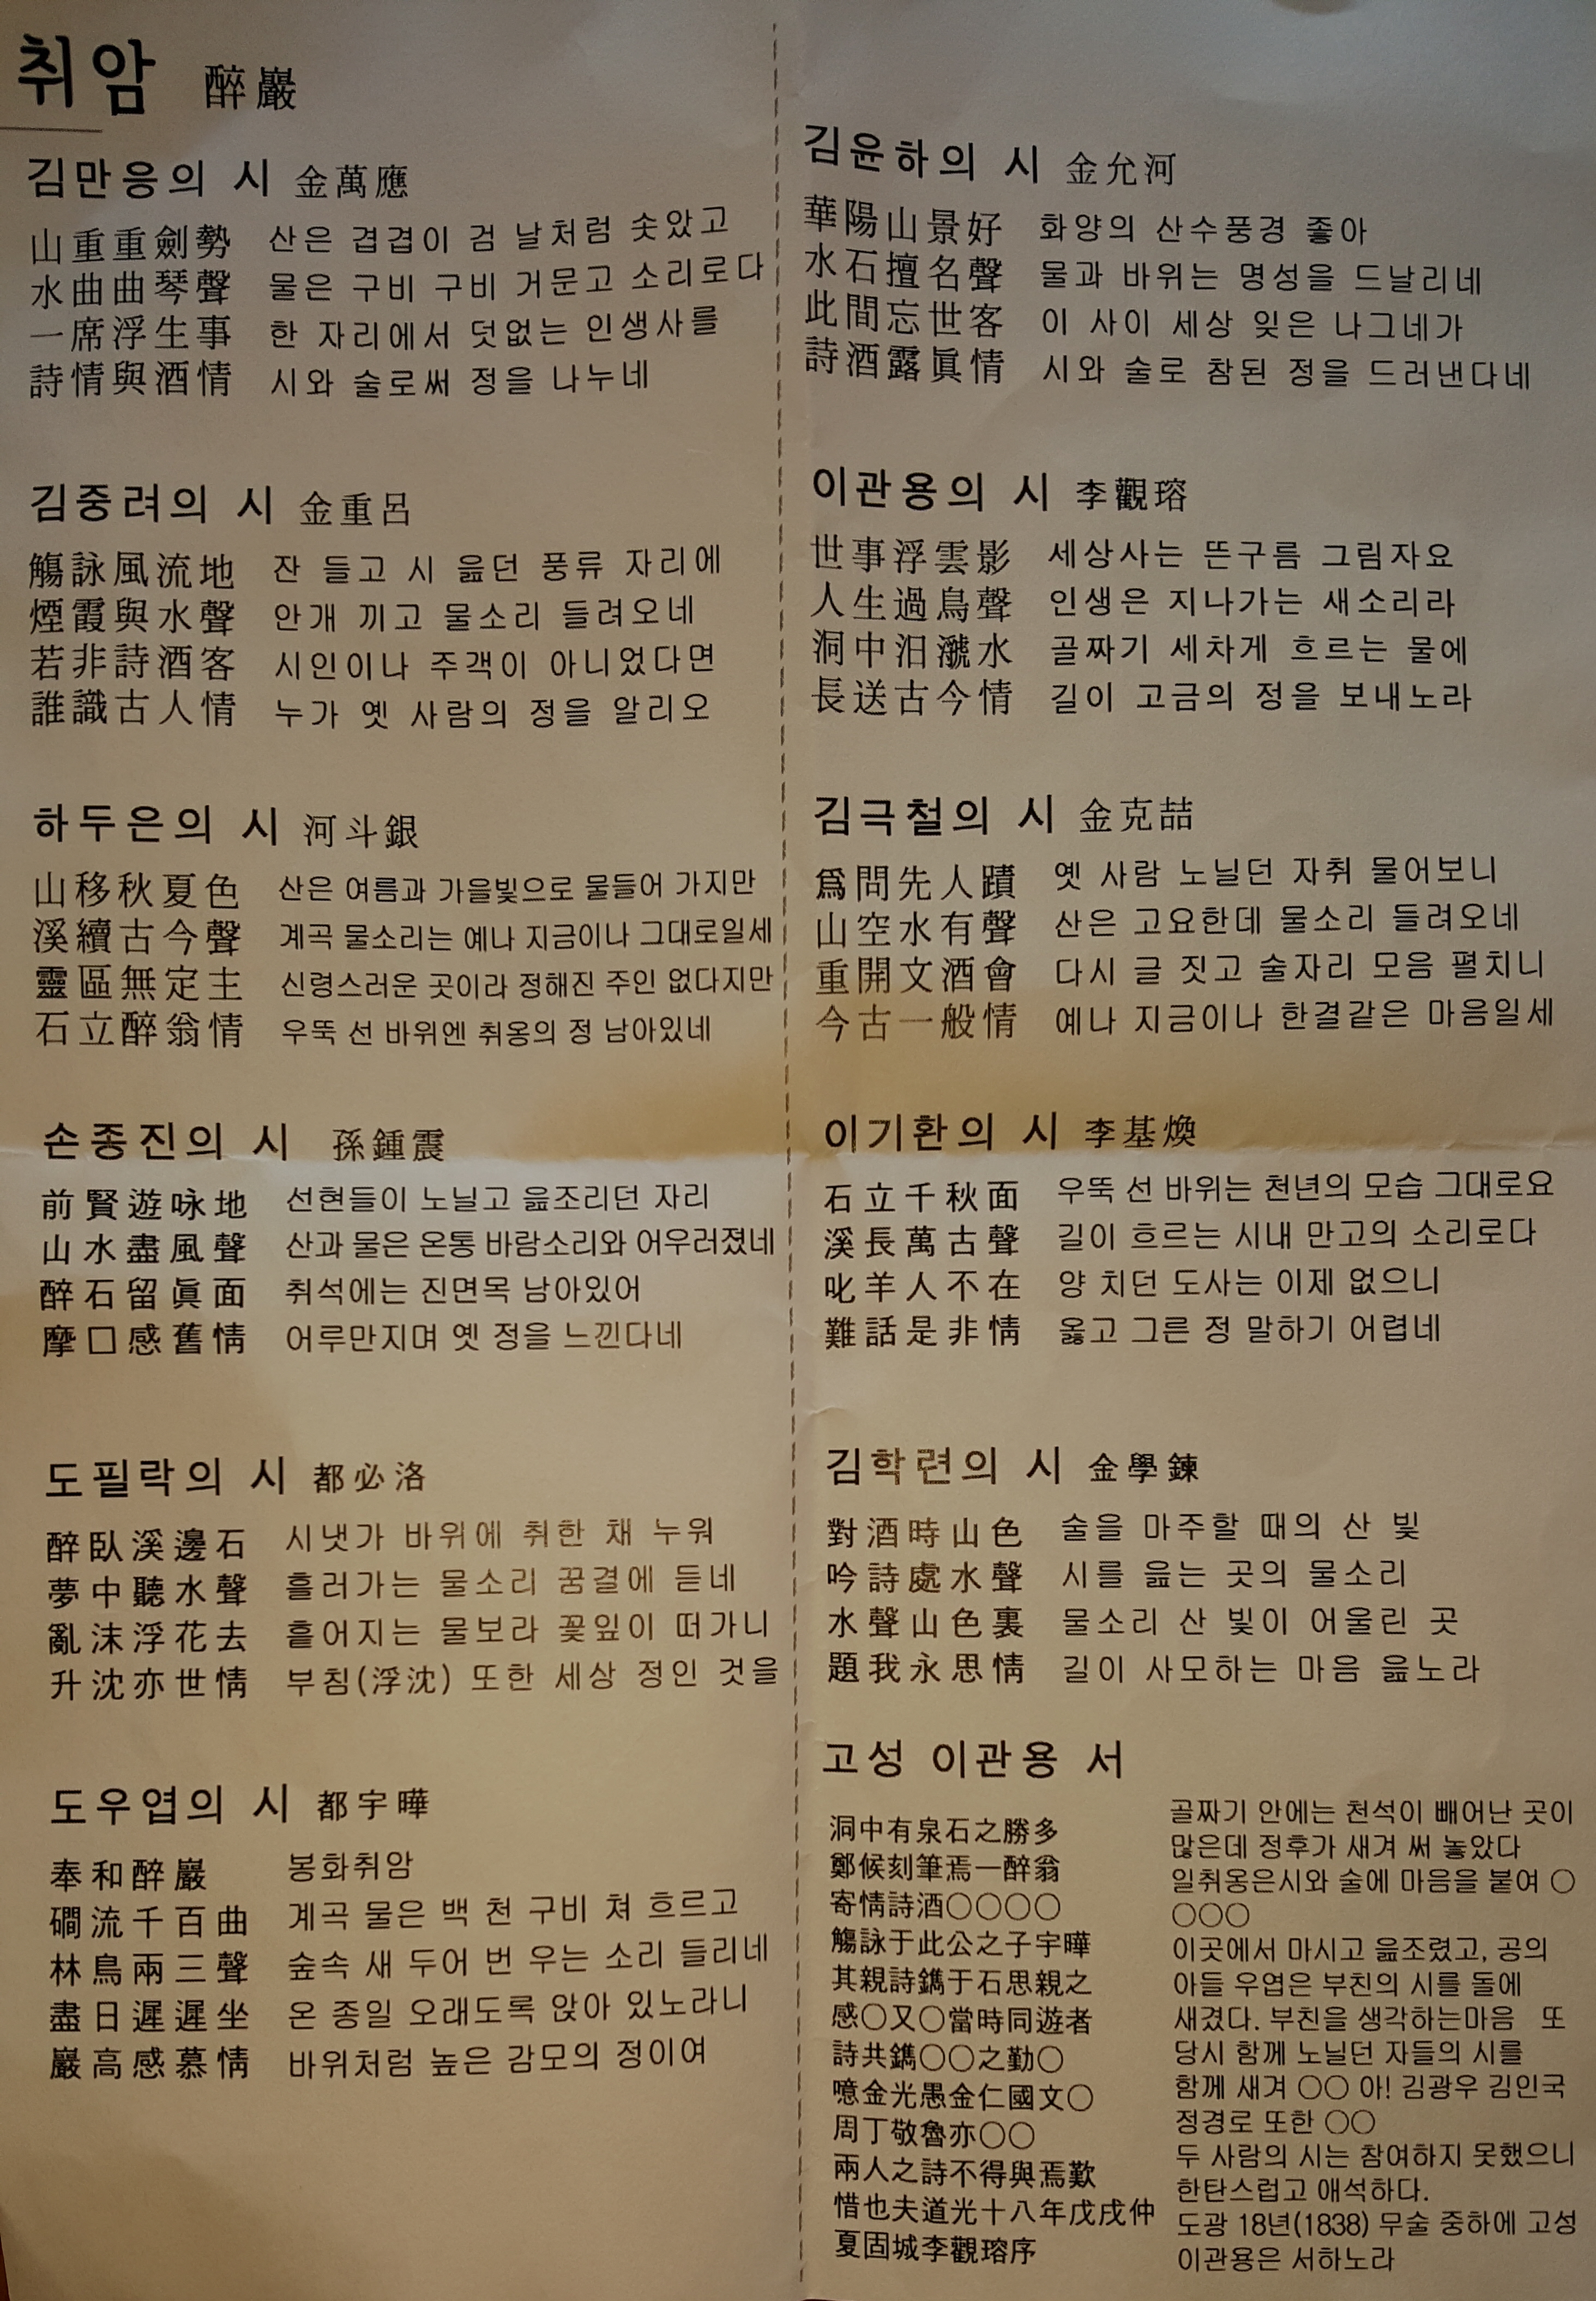 취암 醉巖
김만응의 시 金萬應
山重重劍勢 산은 겹겹이 검 날처럼 솟았고
水曲曲琴聲 물은 구비 구비 거문고 소리로다
一席浮生事 한 자리에서 덧없는 인생사를
詩情與酒情 시와 술로써 정을 나누네
김중려의 시 金重呂
觴詠風流地 잔 들고 시 읊던 풍류 자리에
煙霞與水聲 안개 끼고 물소리 들려오네
若非詩酒客 시인이나 주객이 아니었다면
誰識古人情 누가 옛 사람의 정을 알리오
하두은의 시 河斗銀
山移秋夏色 산은 여름과 가을빛으로 물들어 가지만
溪續古今聲 계곡 물소리는 예나 지금이나 그대로일세
靈區無定主 신령스러운 곳이라 정해진 주인 없다지만
石立醉翁情 우뚝 선 바위엔 취옹의 정 남아있네
손종진의 시 孫鍾震
前賢遊咏地 선현들이 노닐고 읊조리던 자리
山水盡風聲 산과 물은 온통 바람소리와 어우러졌네
醉石留眞面 취석에는 진면목 남아있어
摩口感舊情 어루만지며 옛 정을 느낀다네
도필락의 시 都必洛
醉臥溪邊石 시냇가 바위에 취한 채 누워
夢中聽水聲 흘러가는 물소리 꿈결에 듣네
亂沫浮花去 흩어지는 물보라 꽃잎이 떠가니
升沈亦世情 부침(浮沈) 또한 세상 정인 것을
도우엽의 시 都宇曄
奉和醉巖 봉화취암
磵流千百曲 계곡 물은 백 천 구비 쳐 흐르고
林鳥兩三聲 숲속 새 두어 번 우는 소리 들리네
盡日遲遲坐 온 종일 오래도록 앉아 있노라니
巖高感慕情 바위처럼 높은 감모의 정이여
김윤하의 시 金允河
華陽山景好 화양의 산수풍경 좋아
水石擅名聲 물과 바위는 명성을 드날리네
此間忘世客 이 사이 세상 잊은 나그네가
詩酒露眞情 시와 술로 참된 정을 드러낸다네
이관용의 시 李觀瑢
世事浮雲影 세상사는 뜬구름 그림자요
人生過鳥聲 인생은 지나가는 새소리라
洞中汨㶁水 골짜기 세차게 흐르는 물에
長送古今情 길이 고금의 정을 보내노라
김극철의 시 金克喆
爲問先人蹟 옛 사람 노닐던 자취 물어보니
山空水有聲 산은 고요한데 물소리 들려오네
重開文酒會 다시 글 짓고 술자리 모음 펼치니
今古一般情 예나 지금이나 한결같은 마음일세
이기환의 시 李基煥
石立千秋面 우뚝 선 바위는 천년의 모습 그대로요
溪長萬古聲 길이 흐르는 시내 만고의 소리로다
叱羊人不在 양 치던 도사는 이제 없으니
難話是非情 옳고 그른 정 말하기 어렵네
김학련의 시 金學鍊
對酒時山色 술을 마주할 때의 산 빛
吟詩處水聲 시를 읊는 곳의 물소리
水聲山色裏 물소리 산 빛이 어울린 곳
題我永思情 길이 사모하는 마음 읊노라
고성 이관용 서
洞中有泉石之勝多
鄭候刻筆焉一醉翁
寄情詩酒○○○○
觴詠于此公之子宇曄
其親詩鐫于石思親之
感○又○當時同遊者
詩共鐫○○之勤○
噫金光愚金仁國文○
周丁敬魯亦○○
兩人之詩不得與焉歎
惜也夫道光十八年戊戌仲
夏固城李觀瑢序
골짜기 안에는 천석이 빼어난 곳이
많은데 정후가 새겨 써 놓았다
일취옹은시와 술에 마음을 붙여 ○
○○○
이곳에서 마시고 읊조렸고, 공의
아들 우엽은 부친의 시를 돌에
새겼다. 부친을 생각하는마음 또
당시 함께 노닐던 자들의 시를
함께 새겨 ○○ 아! 김광우 김인국
정경로 또한 ○○
두 사람의 시는 참여하지 못했으니
한탄스럽고 애석하다.
도광 18년(1838) 무술 중하에 고성
이관용은 서하노라